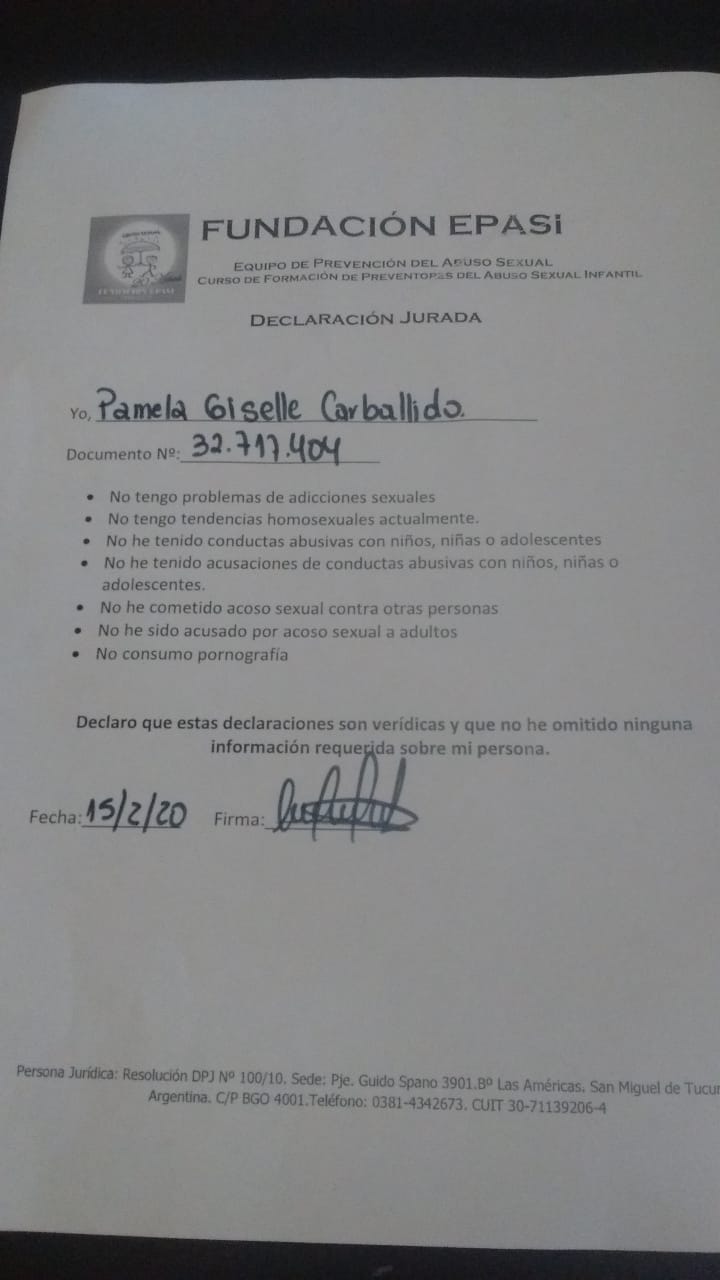 FUNDACIÓN EPASi
EQUIPO DE PREVENCIÓN DEL ABUSO SEXUAL
CURSO DE FORMACIÓN DE PREVENTORES DEL ABUSO SEXUAL INFANTIL
DECLARACIÓN JURADA
Yo, Pamela Giselle Carballido.
Documento Nº: 32.717.404
• No tengo problemas de adicciones sexuales
• No tengo tendencias homosexuales actualmente.
• No he tenido conductas abusivas con niños, niñas o adolescentes
• No he tenido acusaciones de conductas abusivas con niños, niñas o
adolescentes.
• No he cometido acoso sexual contra otras personas
• No he sido acusado por acoso sexual a adultos
• No consumo pornografía
Declaro que estas declaraciones son verídicas y que no he omitido ninguna
información requerida sobre mi persona.
Fecha: 15/2/20 Firma:
Persona Jurídica: Resolución DPJ Nº 100/10. Sede: Pje. Guido Spano 3901.Bº Las Américas. San Miguel de Tucu
Argentina. C/P BGO 4001.Teléfono: 0381-4342673. CUIT 30-71139206-4